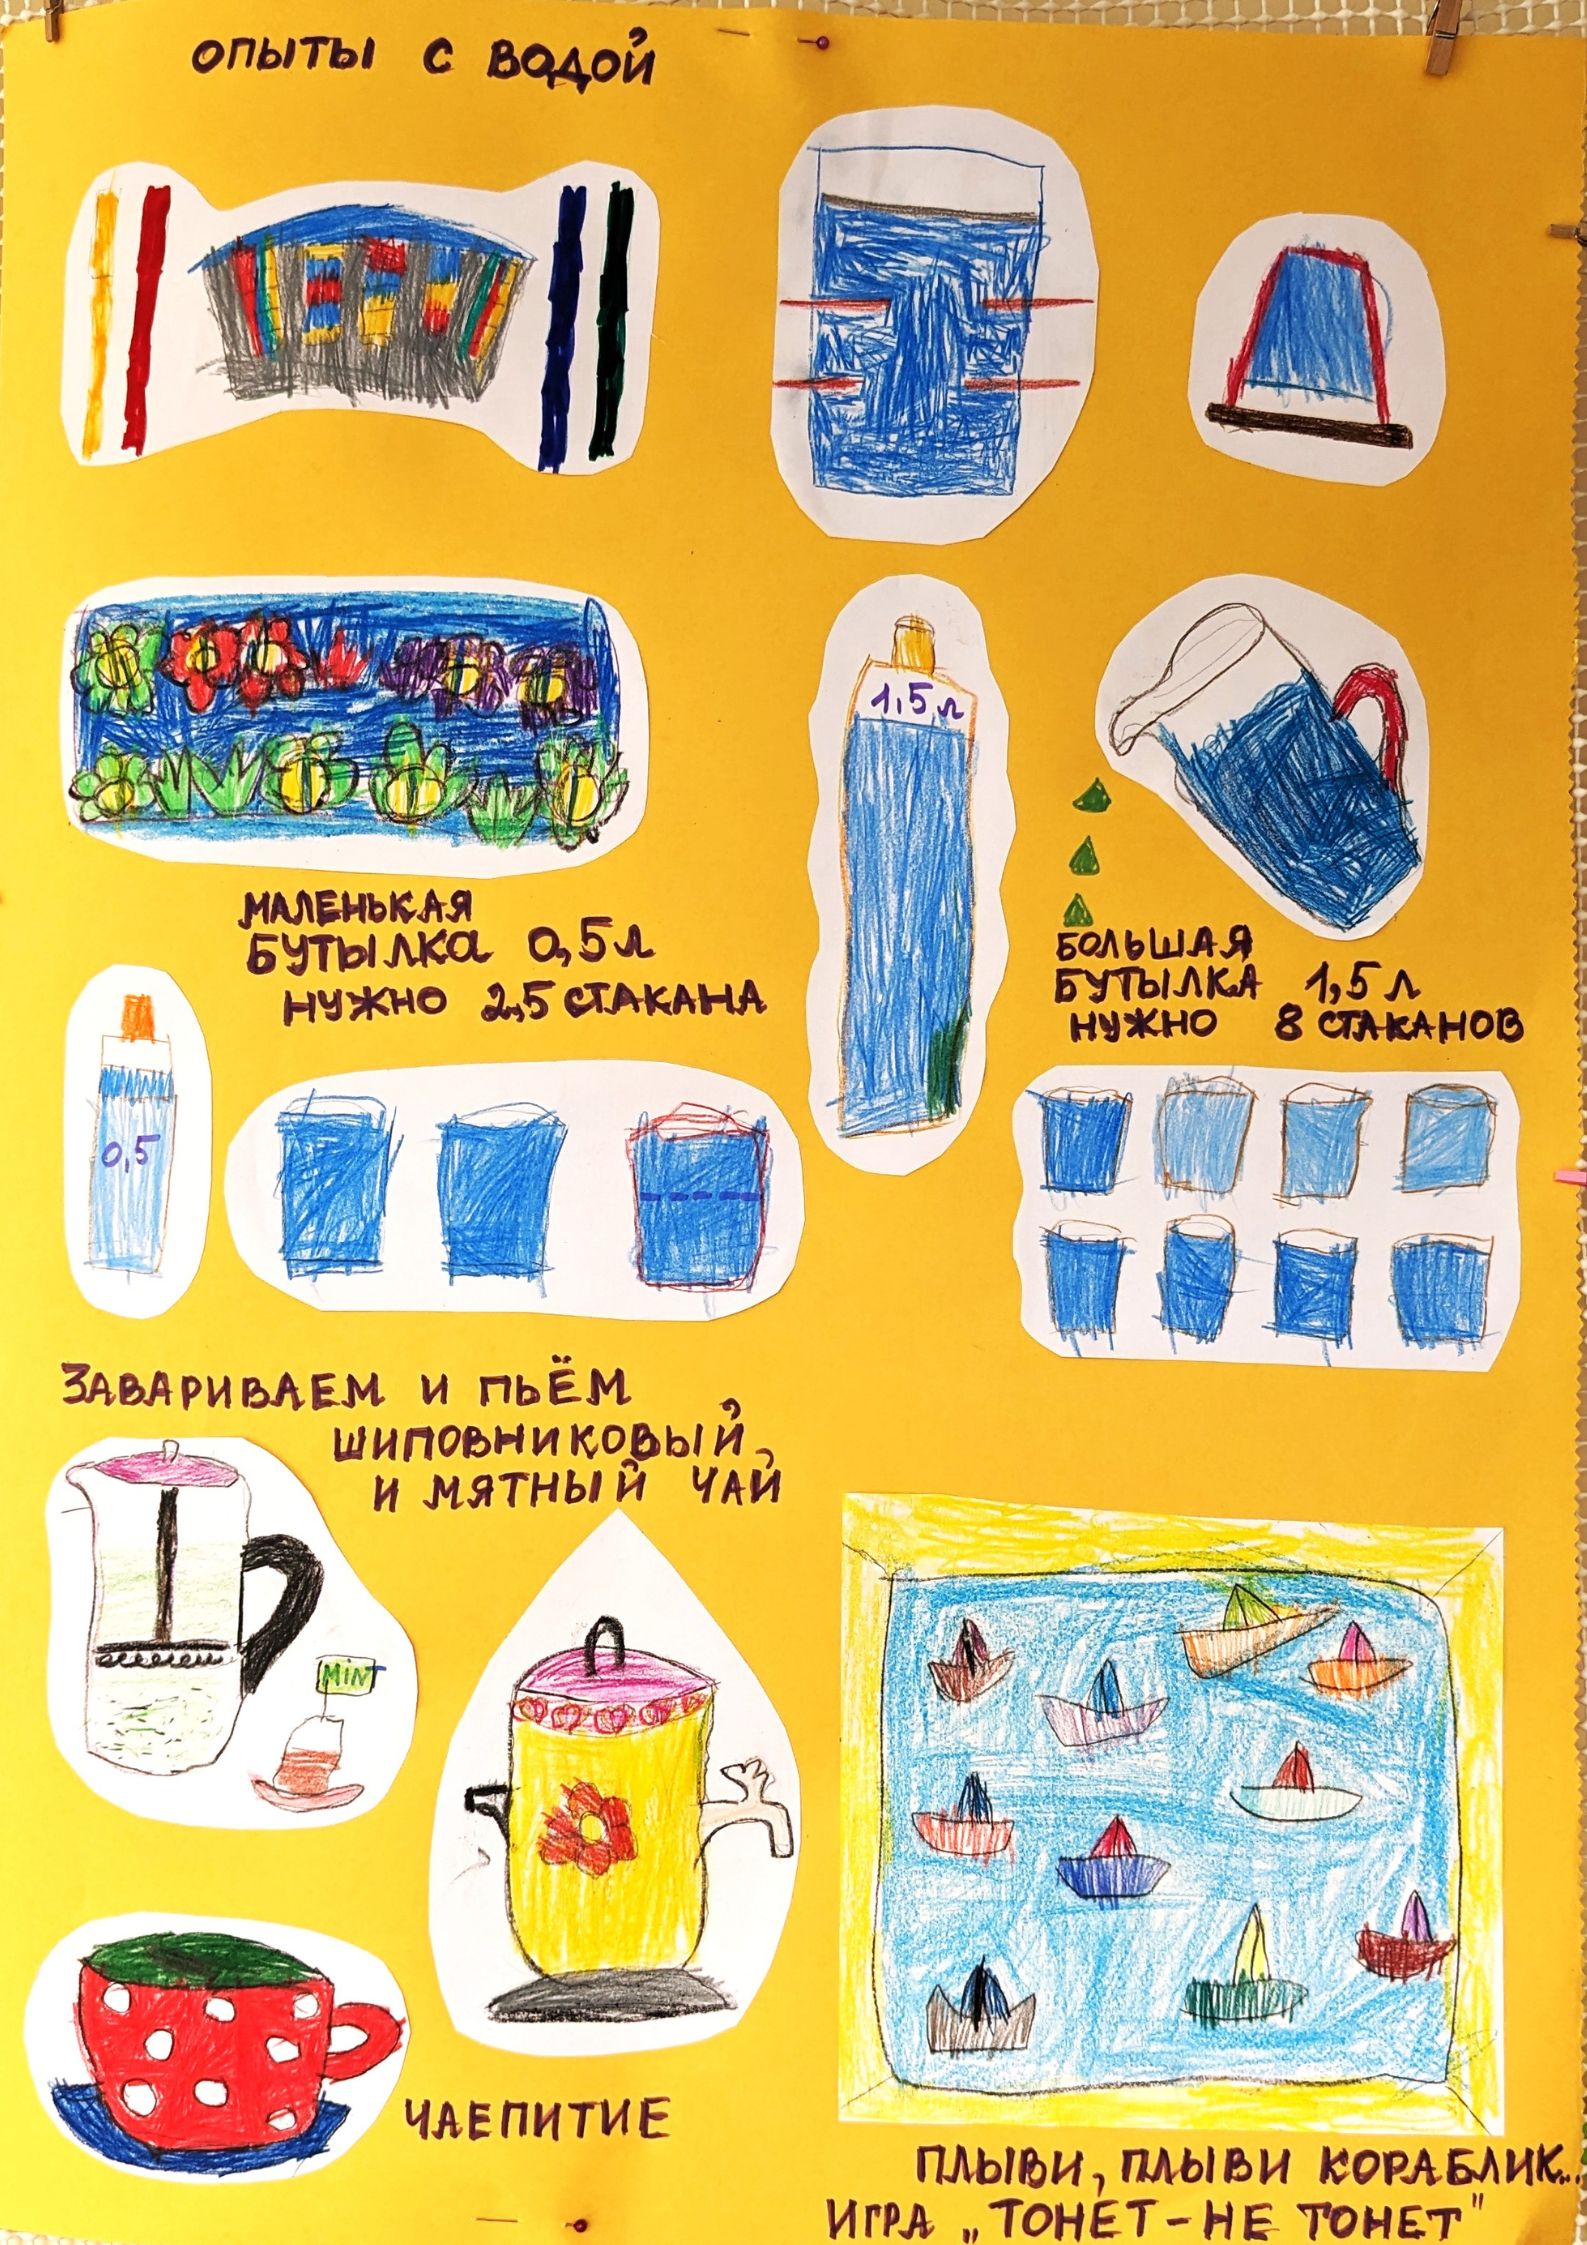 ОПЫТЫ С ВОДОЙ
1,5 л
МАЛЕНЬКАЯ
БУТЫЛКА 0,5 л
НУЖНО 2,5 СТАКАНА
БОЛЬШАЯ
БУТЫЛКА 1,5 л
НУЖНО 8 СТАКАНОВ
0,5
ЗАВАРИВАЕМ И ПЬЁМ
ШИПОВНИКОВЫЙ,
И МЯТНЫЙ ЧАЙ
MINT
ЧАЕПИТИЕ
ПЛЫВИ, ПЛЫВИ КОРАБЛИК...
ИГРА „ТОНЕТ-НЕ ТОНЕТ"